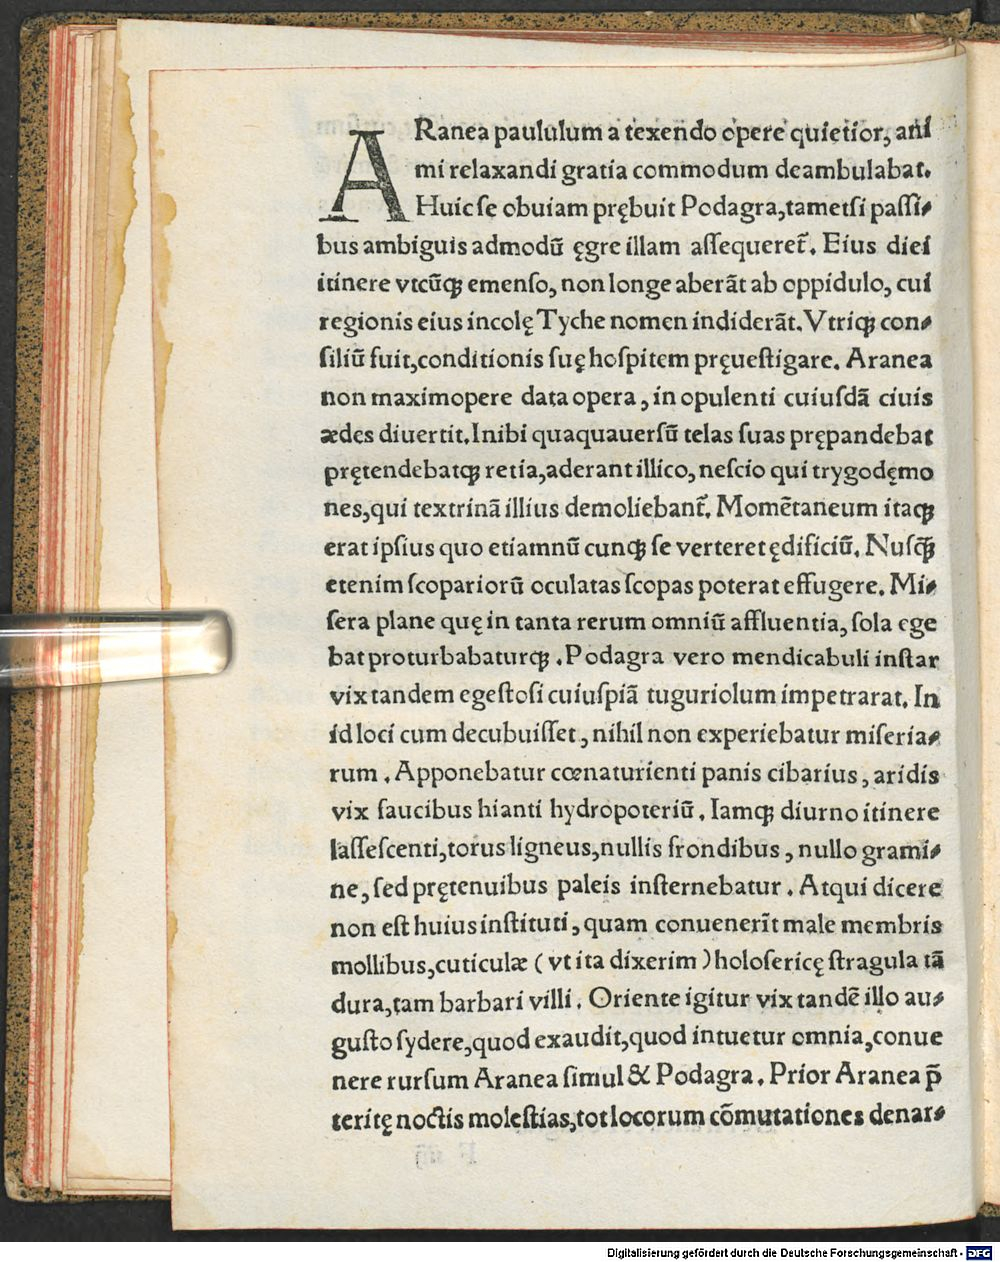 ARanea paululum a texendo opere quietior, ani
mi relaxandi gratia commodum deambulabat.
Huic se obuiam prębuit Podagra,tametſi paſſi⸗
bus ambiguis admodū ęgre illam aſſequeret᷑. Eius diei
itinere vtcūqꝫ emenſo, non longe aberāt ab oppidulo, cui
regionis eius incolę Tyche nomen indiderāt. Vtriqꝫ con⸗
ſiliū fuit,conditionis ſuę hoſpitem pręueſtigare. Aranea
non maximopere data opera, in opulenti cuiuſdā ciuis
ædes diuertit.Inibi quaquauerſū telas ſuas prępandebat
prętendebatqꝫ retia,aderant illico, neſcio qui trygodęmo
nes,qui textrinā illius demoliebant᷑. Momētaneum itaqꝫ
erat ipſius quo etiamnū cunqꝫ ſe verteret ędificiū. Nuſq̄ꝫ
etenim ſcopariorū oculatas ſcopas poterat effugere. Mi⸗
ſera plane quę in tanta rerum omniū affluentia, ſola ege
bat proturbabaturqꝫ. Podagra vero mendicabuli inſtar
vix tandem egeſtoſi cuiuſpiā tuguriolum impetrarat. In
id loci cum decubuiſſet, nihil non experiebatur miſeria⸗
rum. Apponebatur cœnaturienti panis cibarius, aridis
vix faucibus hianti hydropoteriū. Iamqꝫ diurno itinere
laſſeſcenti,torus ligneus,nullis frondibus, nullo grami⸗
ne, ſed prętenuibus paleis inſternebatur. Atqui dicere
non eſt huius inſtituti, quam conuenerīt male membris
mollibus,cuticulæ (vt ita dixerim) holoſericę ſtragula tā
dura,tam barbari villi. Oriente igitur vix tandē illo au⸗
guſto ſydere,quod exaudit,quod intuetur omnia,conue
nere rurſum Aranea ſimul & Podagra. Prior Aranea p̄
teritę noctis moleſtias,tot locorum cōmutationes denar⸗
Digitalisierung gefördert durch die Deutsche Forschungsgemeinschaft - DFG